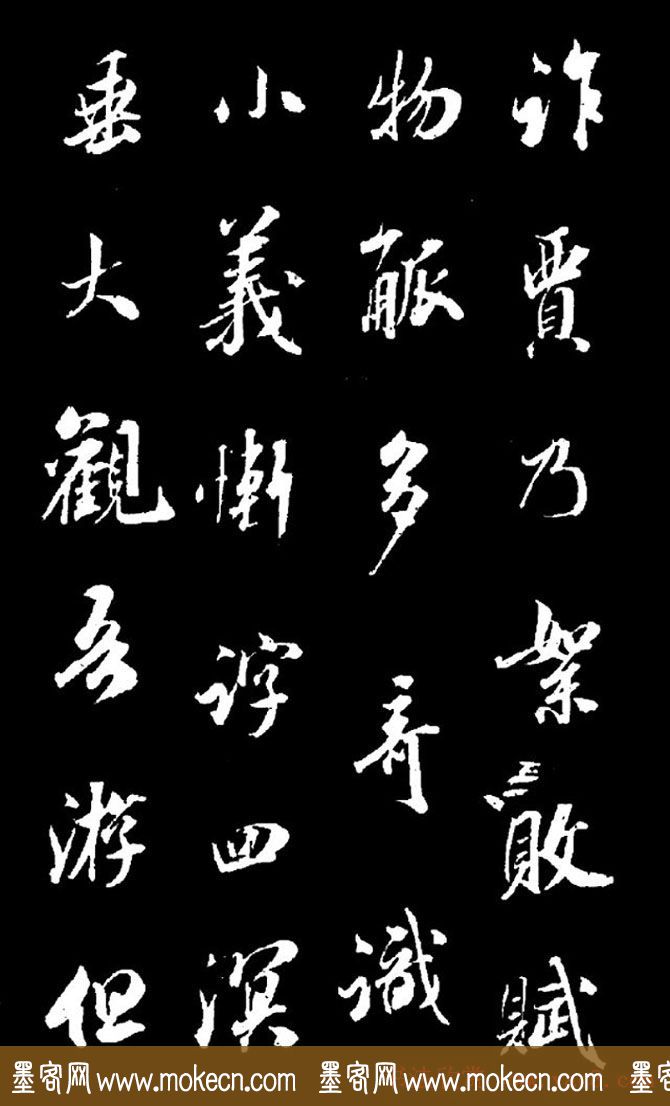 詐賈乃絮敗賦
物多奇識
小義慚諄四溟
垂大觀吾游但
墨客网 www.mokecn.com 墨客网 www.mokecn.com 墨客